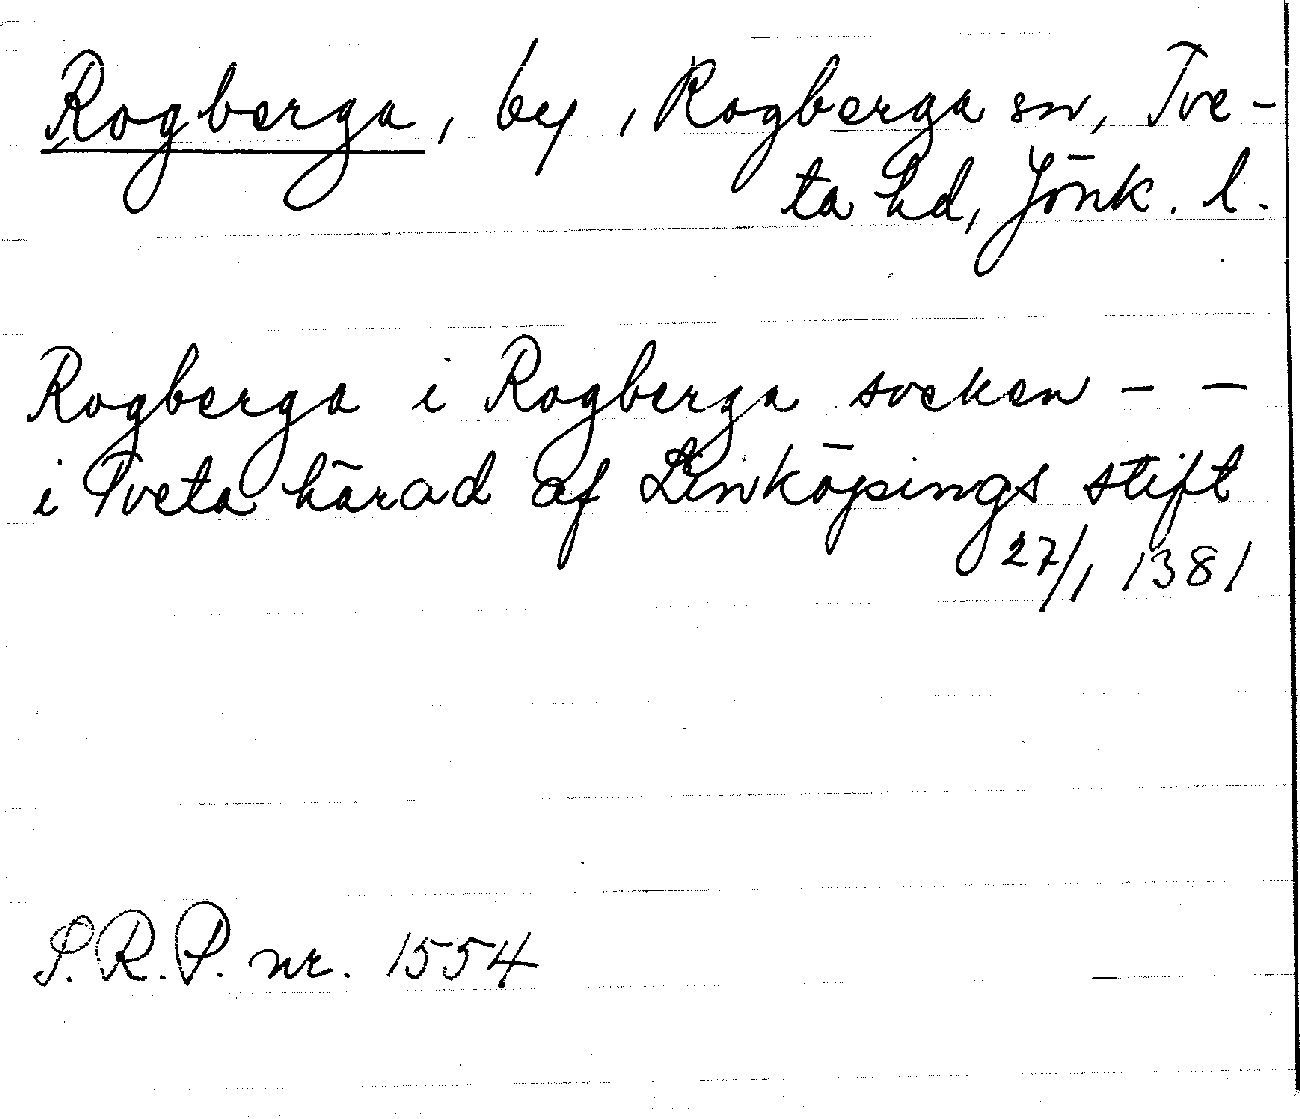 Rogberga, by, Rogberga sn, Tve-
ta hd, Jönk. l.
Rogberga i Rogberga socken - -
i Tveta härad af Linköpings stift
27/1 1381
S.R.P. nr. 1554